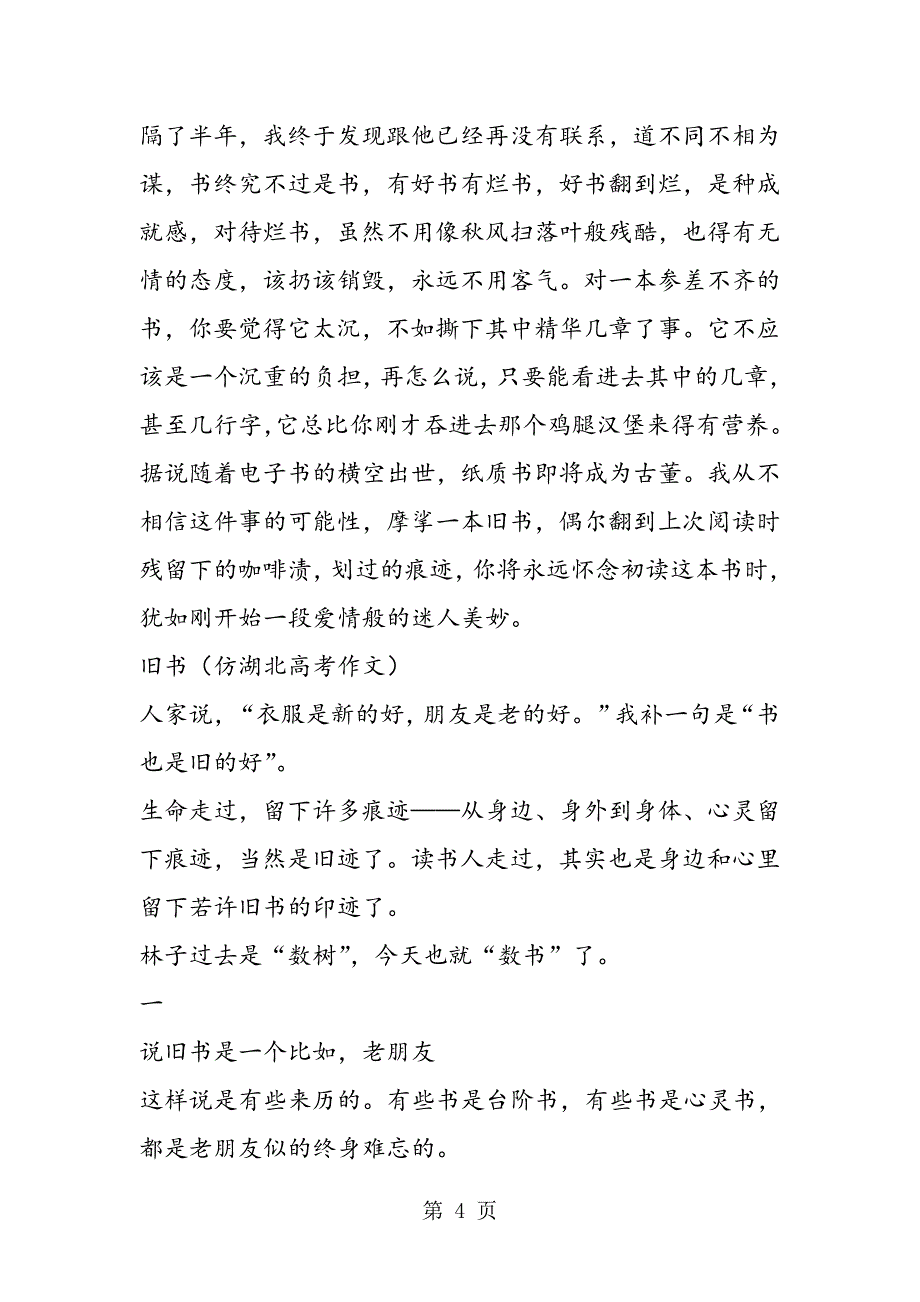 隔了半年，我终于发现跟他已经再没有联系，道不同不相为
谋，书终究不过是书，有好书有烂书，好书翻到烂，是种成
就感，对待烂书，虽然不用像秋风扫落叶般残酷，也得有无
情的态度，该扔该销毁，永远不用客气。对一本参差不齐的
书，你要觉得它太沉，不如撕下其中精华几章了事。它不应
该是一个沉重的负担，再怎么说，只要能看进去其中的几章，
甚至几行字，它总比你刚才吞进去那个鸡腿汉堡来得有营养。
据说随着电子书的横空出世，纸质书即将成为古董。我从不
相信这件事的可能性，摩挲一本旧书，偶尔翻到上次阅读时
残留下的咖啡渍，划过的痕迹，你将永远怀念初读这本书时，
犹如刚开始一段爱情般的迷人美妙。
旧书（仿湖北高考作文）
人家说，“衣服是新的好，朋友是老的好。”我补一句是“书
也是旧的好”。
生命走过，留下许多痕迹——从身边、身外到身体、心灵留
下痕迹，当然是旧迹了。读书人走过，其实也是身边和心里
留下若许旧书的印迹了。
林子过去是“数树”，今天也就“数书”了。
一
说旧书是一个比如，老朋友
这样说是有些来历的。有些书是台阶书，有些书是心灵书，
都是老朋友似的终身难忘的。
第 4 页